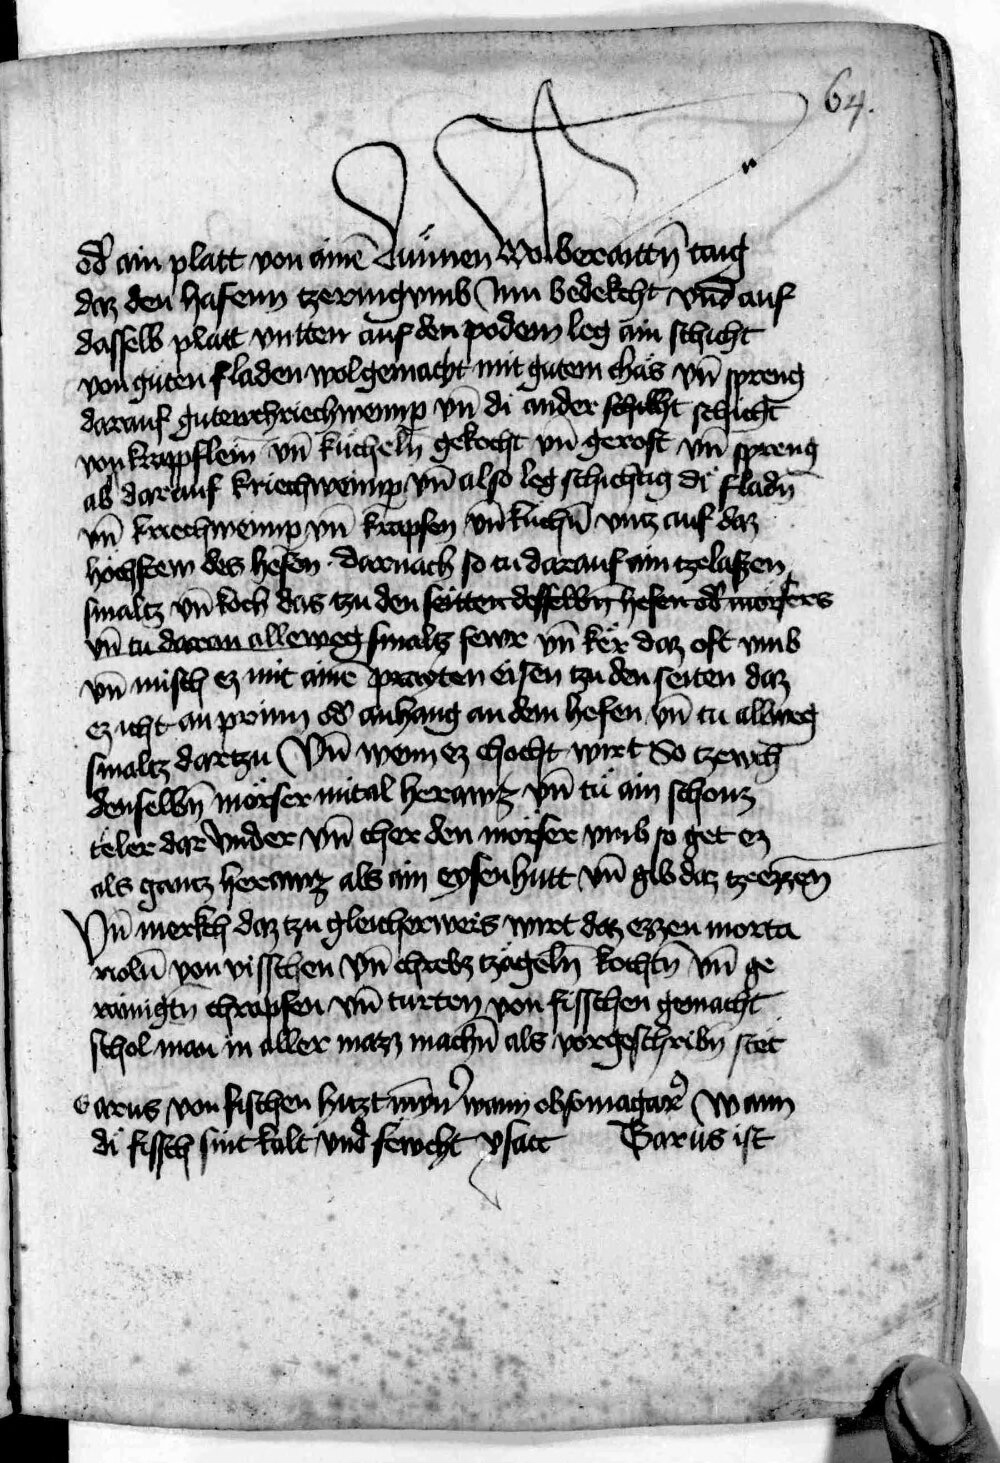 64.
od̕ ain platt von aimē dünnen wolberaittn̄ taig
daz den hafenn tzeringvmb Inn bedekcht vnd auf
dasselb platt vntten auf den podem leg ain schicht
von güten fladen wolgemacht mit gutem chäs vn̄ spreng
darauf gutew chriechweinip̄ vn̄ di ander schikht schicht
von krapflein vn̄ kücheln̄ gekocht vn̄ gerost vn̄ spreng
ab darauf kriechweinip̄ vn̄ also leg schichtig di fladn̄
vn̄ kriechweinip̄ vn̄ krapfen vn̄ küchn̄ vntz auf daz
höchstew des hefen . darnach so tu darauf ain tzelaßen
smaltz vn̄ koch das tzu den seitten desselbn̄ hefen od̕ morsers
vn̄ tu daran alleweg smaltz sewr vn̄ ker daz oft vmb
vn̄ misch ez mit aimē prayten eisen tzu den seiten daz
ez icht an prinn od̕ anhang an dem hefen vn̄ tu allweg
smaltz dartzu Vn̄ wenn ez chocht wirt So tzewch
denselbn̄ mörser mital herawz vn̄ tü ain schonz
teler dar vnder vn̄ cher den mörser vmb so get ez
als gantz herawz als ain eysenhutt vn̄ gib daz tzeezzen̄
Vn̄ merkch daz tzu gleicherweis wirt daz ezzen morta
riolū von visschen vn̄ chrebz tzägeln̄ kochtn̄ vn̄ ge
rainigtn̄ chrapfen vn̄ turten von fisschen gemacht
schol man in aller mazz machn̄ als vorgeschribn̄ stet
Garus von fischen hitzt wann Wann
di fissch sint kalt vnd fewcht Garus ist